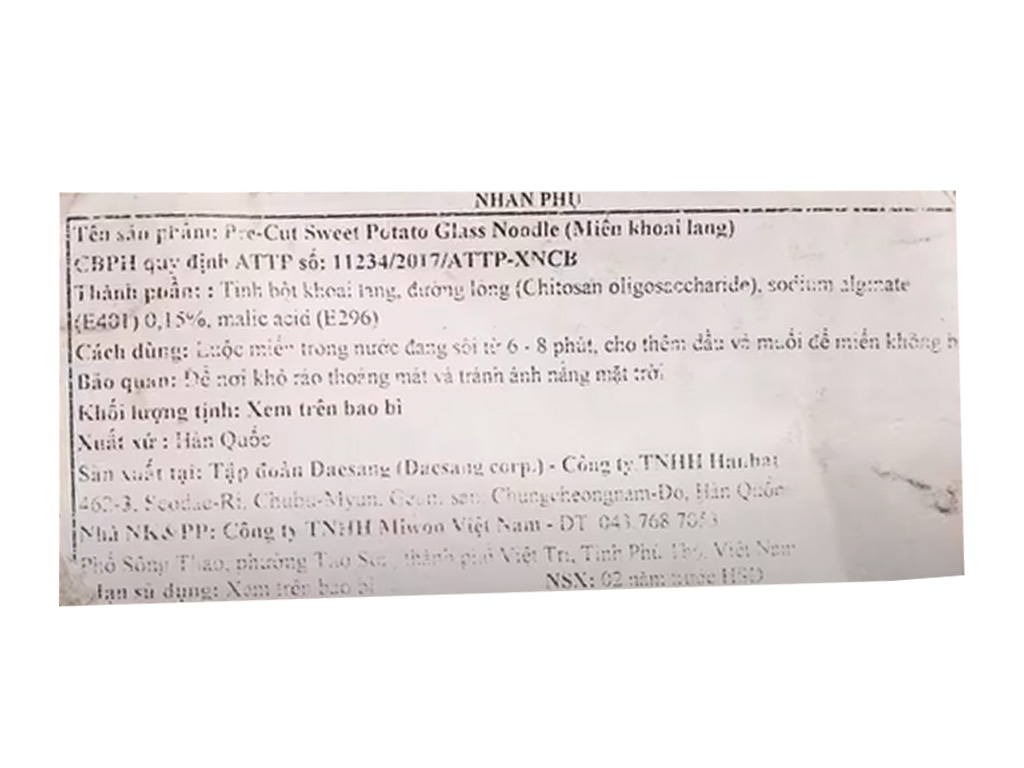 NHÃN PHỤ
Tên sản phẩm: Pre-Cut Sweet Potato Glass Noodle (Miến khoai lang)
CBPH quy định ATTP số: 11234/2017/ATTP-XNCB
Thành phần: : Tinh bột khoai lang, đường lỏng (Chitosan oligosaccharide), sodium alginate
(E401) 0,15%, malic acid (E296)
Cách dùng: Luộc miến trong nước đang sôi từ 6 - 8 phút, cho thêm dầu và muối để miến không b
Bảo quản: Để nơi khô ráo thoáng mát và tránh ánh nắng mặt trời
Khối lượng tịnh: Xem trên bao bì
Xuất xứ : Hàn Quốc
Sản xuất tại: Tập đoàn Daesang (Daesang corp.) - Công ty TNHH
Chungcheongnam-Do, Hàn Quốc
Nhà NK&PP: Công ty TNHH Miwon Việt Nam - ĐT 043.768 7053
Phố Sông Thao, phường Thọ Sơn, thành phố Việt Trì, Tỉnh Phú Thọ, Việt Nam
Hạn sử dụng: Xem trên bao bì NSX: 02 năm trước HSD